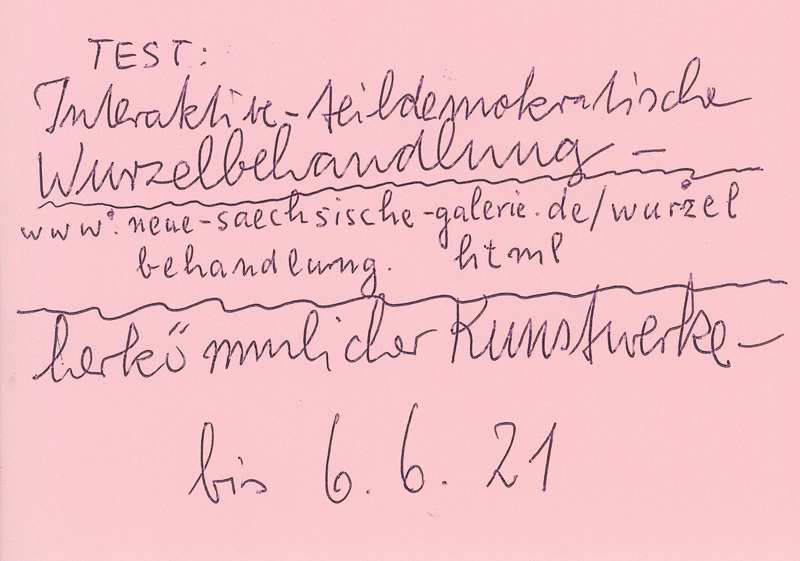 TEST:
Interaktive-teildemokratische
Wurzelbehandlung –
www.neue-saechsische-galerie.de/wurzel
behandlung. html
herkömmlicher Kunstwerke –
bis 6.6.21